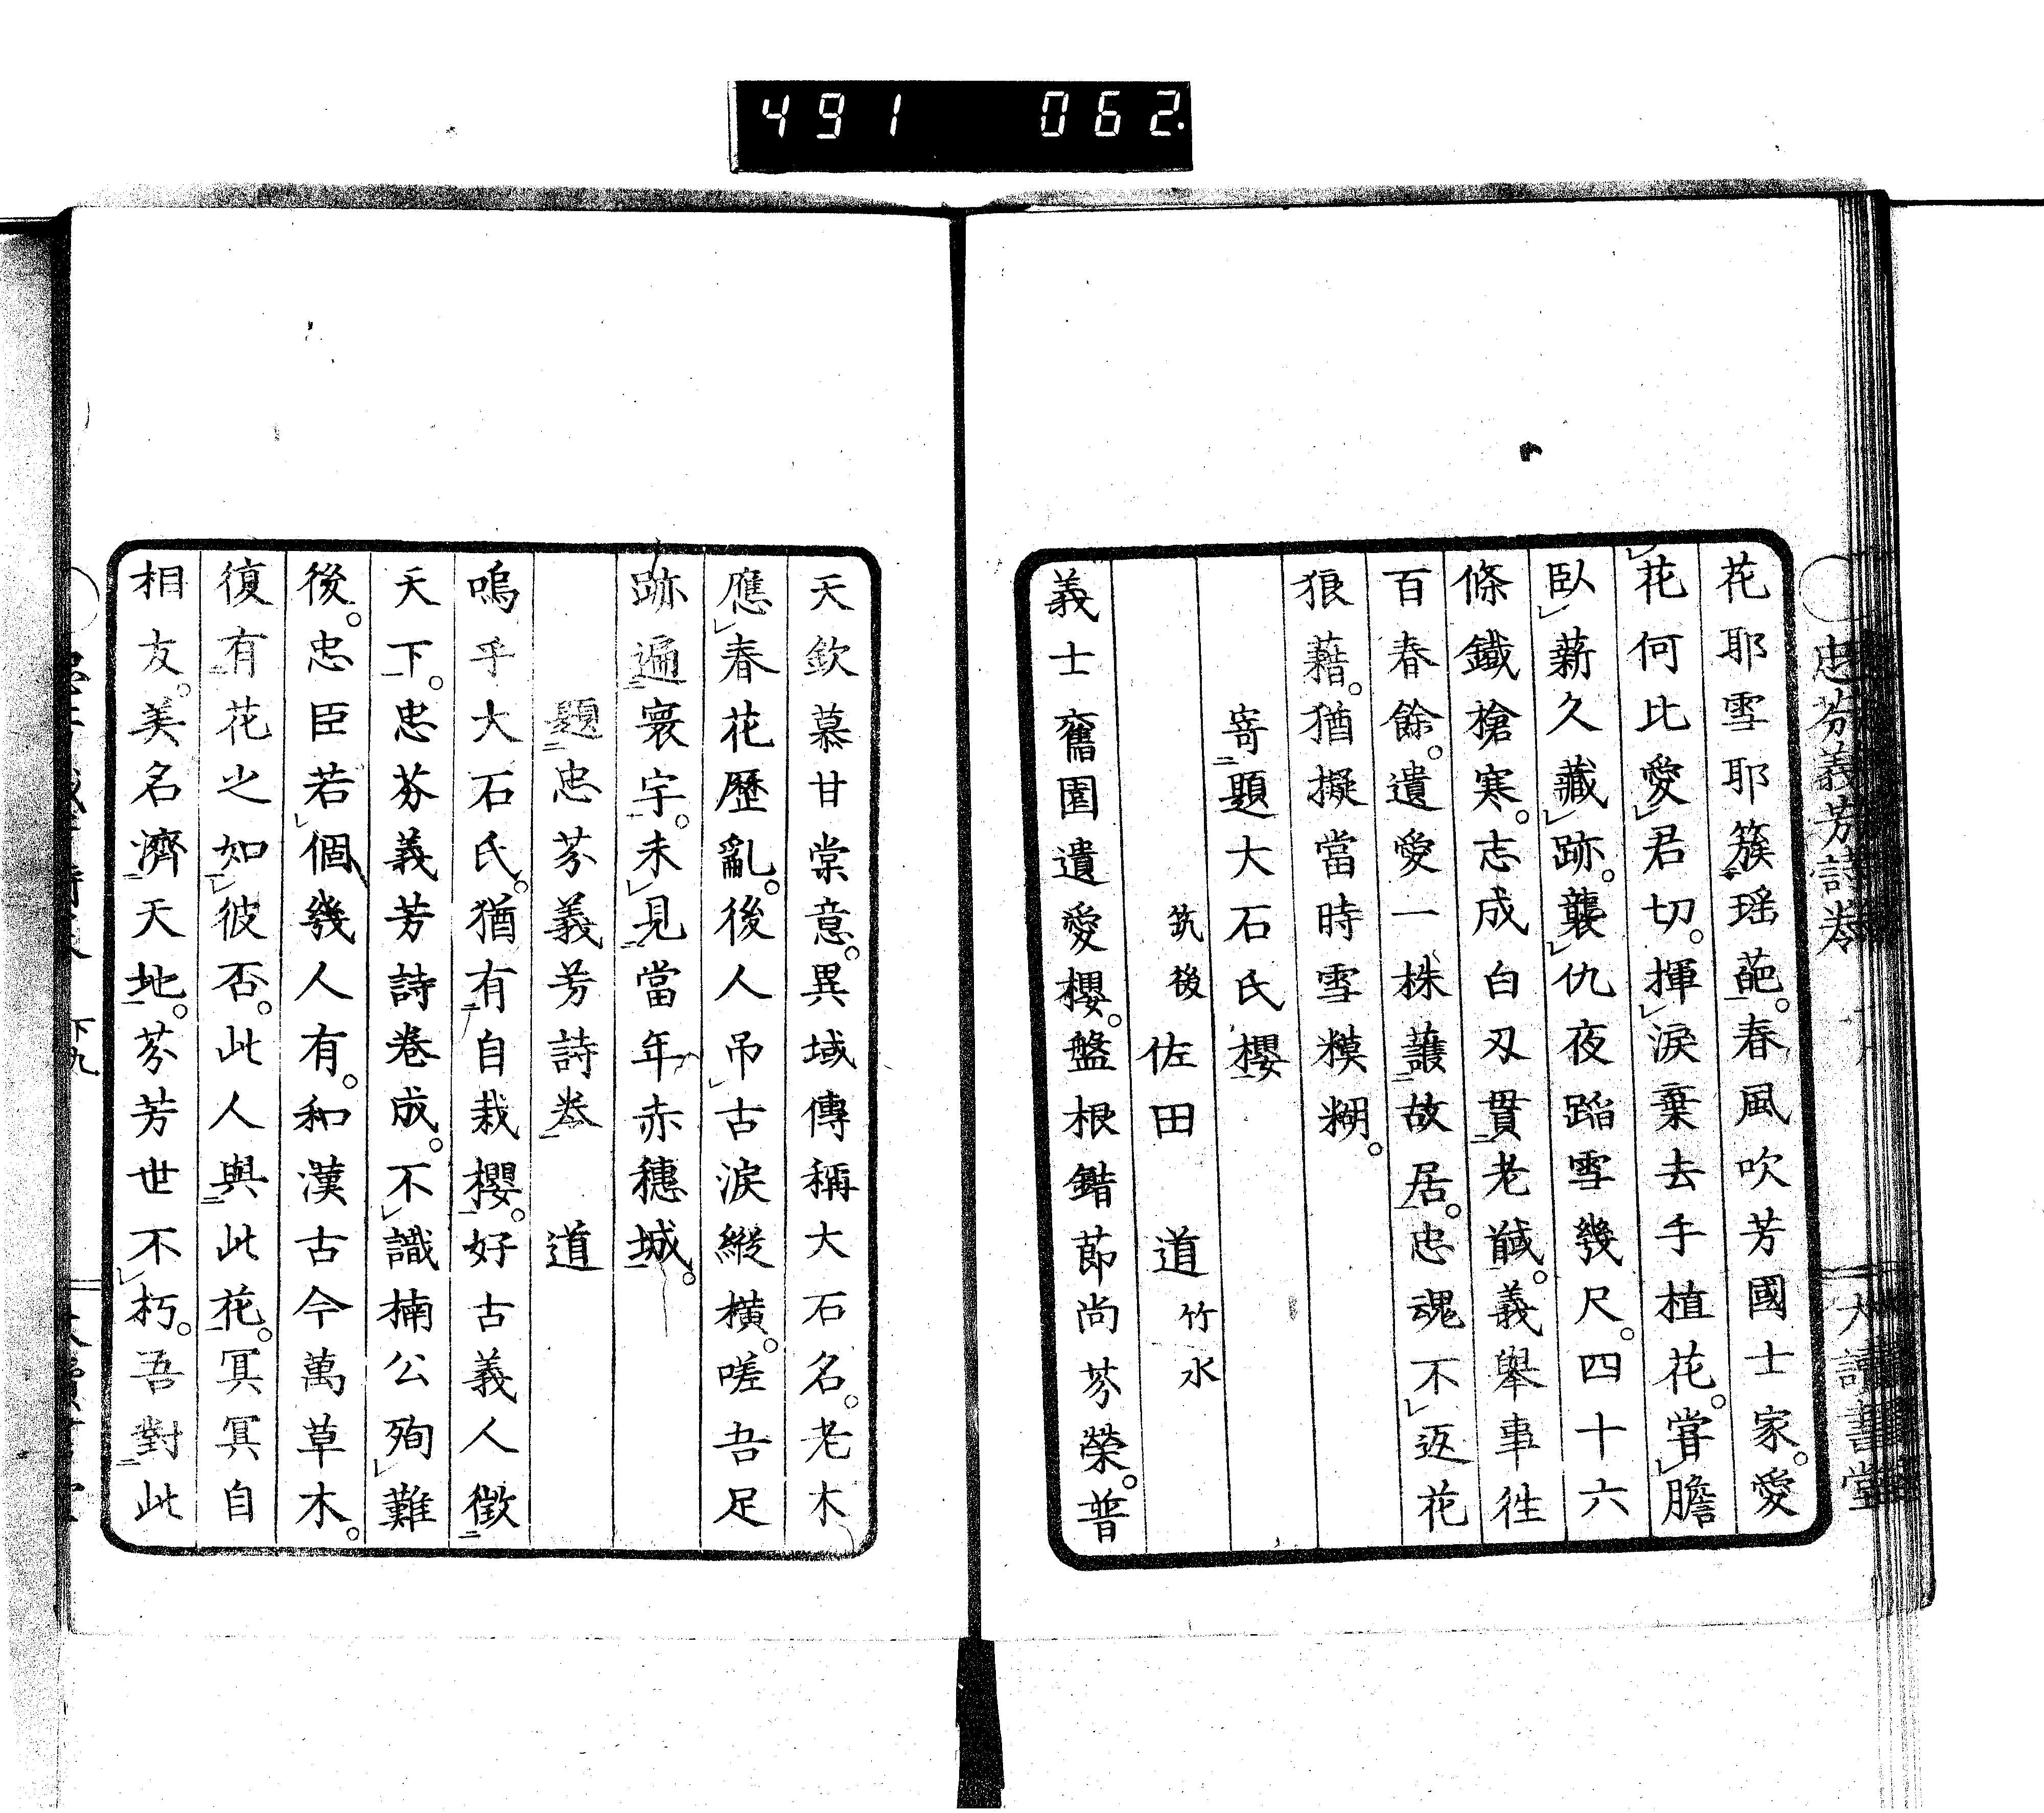 491 062.
忠芬義芳詩卷
大讀書堂
花耶雪耶簇瑶葩。春風吹芳國士家。愛
花何比愛君切。揮淚棄去手植花。甞膽
臥薪久藏跡。襲仇夜蹈雪幾尺。四十六
條鐵槍寒。志成白刃貫老馘。義舉事徃
百春餘。遺愛一株護故居。忠魂不返花
狼藉。猶擬當時雪糢糊。
寄題大石氏櫻
筑後佐田道竹水
義士舊園遺愛櫻。盤根錯節尚芬榮。普
天欽慕甘棠意。異域傳稱大石名。老木
應春花歷亂。後人吊古淚縱橫。嗟吾足
跡遍寰宇。未見當年赤穗城。
題忠芬義芳詩卷 道
嗚乎大石氏。猶有自栽櫻。好古義人徵
天下。忠芬義芳詩卷成。不識楠公殉難
後。忠臣若個幾人有。和漢古今萬草木。
復有花之如彼否。此人與此花。冥冥自
相友。美名濟天地。芬芳世不朽。吾對此
下九